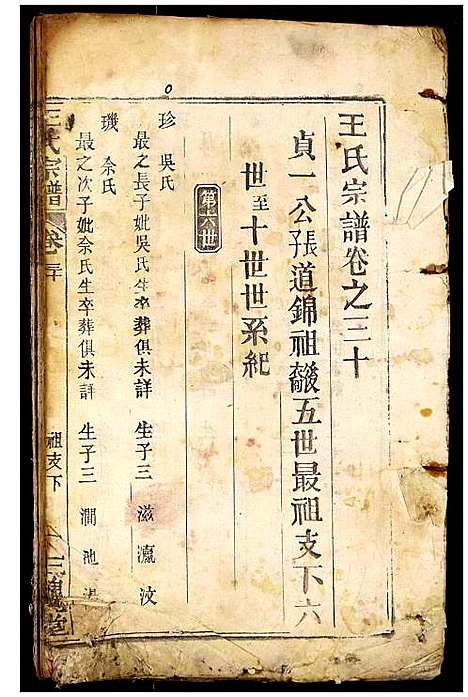 王氏宗譜卷之三十
貞一公張道錦祖發五世最祖支下六
世至十世世系紀
第六世
珍 吳氏
最之長子妣吳氏生卒葬俱未詳 生子三 滋瀛汶
璣 余氏
最之次子妣余氏生卒葬俱未詳 生子三 澗池
王氏宗譜 卷三十 祖支下 一 三槐堂